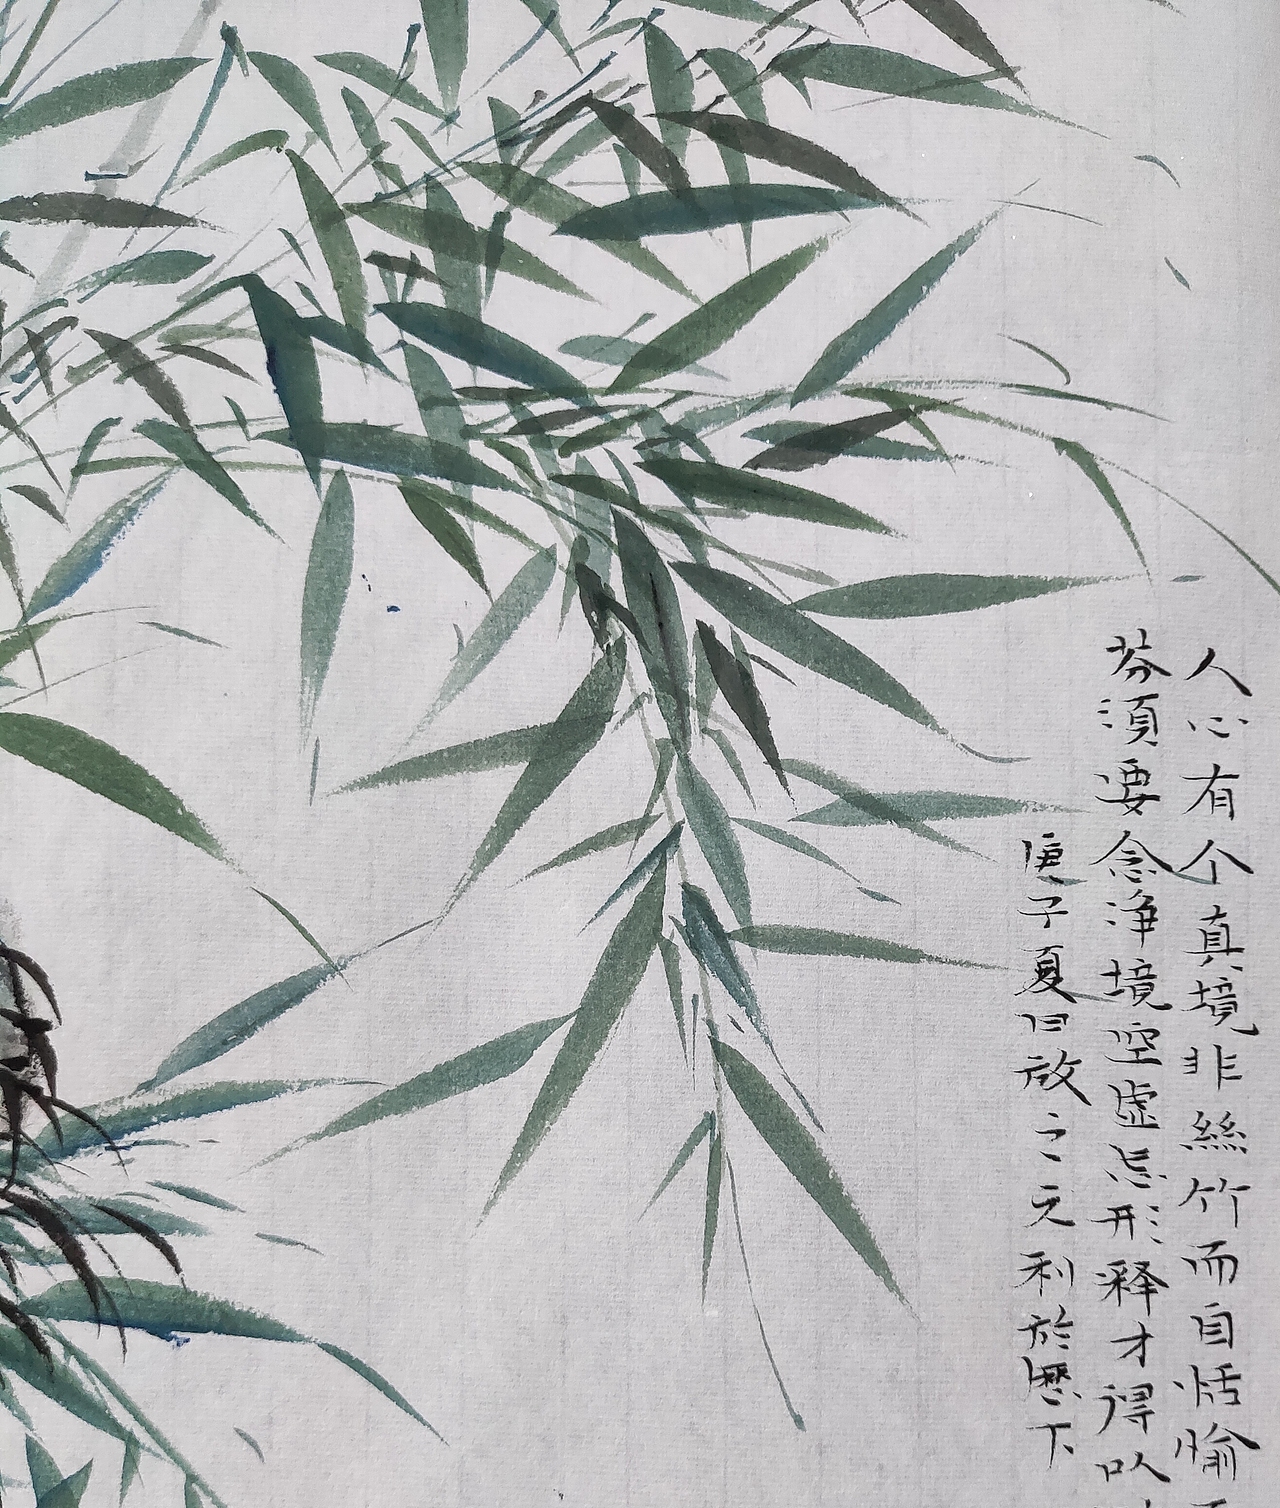 人心有个真境非絲竹而自恬愉
芬須要念浄境空虛忘形释才得以
庚子夏日放之元利於歷下